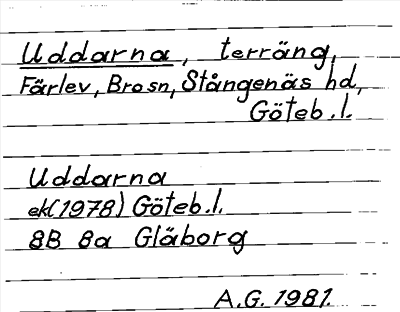 Uddarna, terräng,
Färlev, Bro sn, Stångenäs hd,
Göteb. l.
Uddarna
ek (1978) Göteb. l.
8B 8a Gläborg
A.G. 1981.